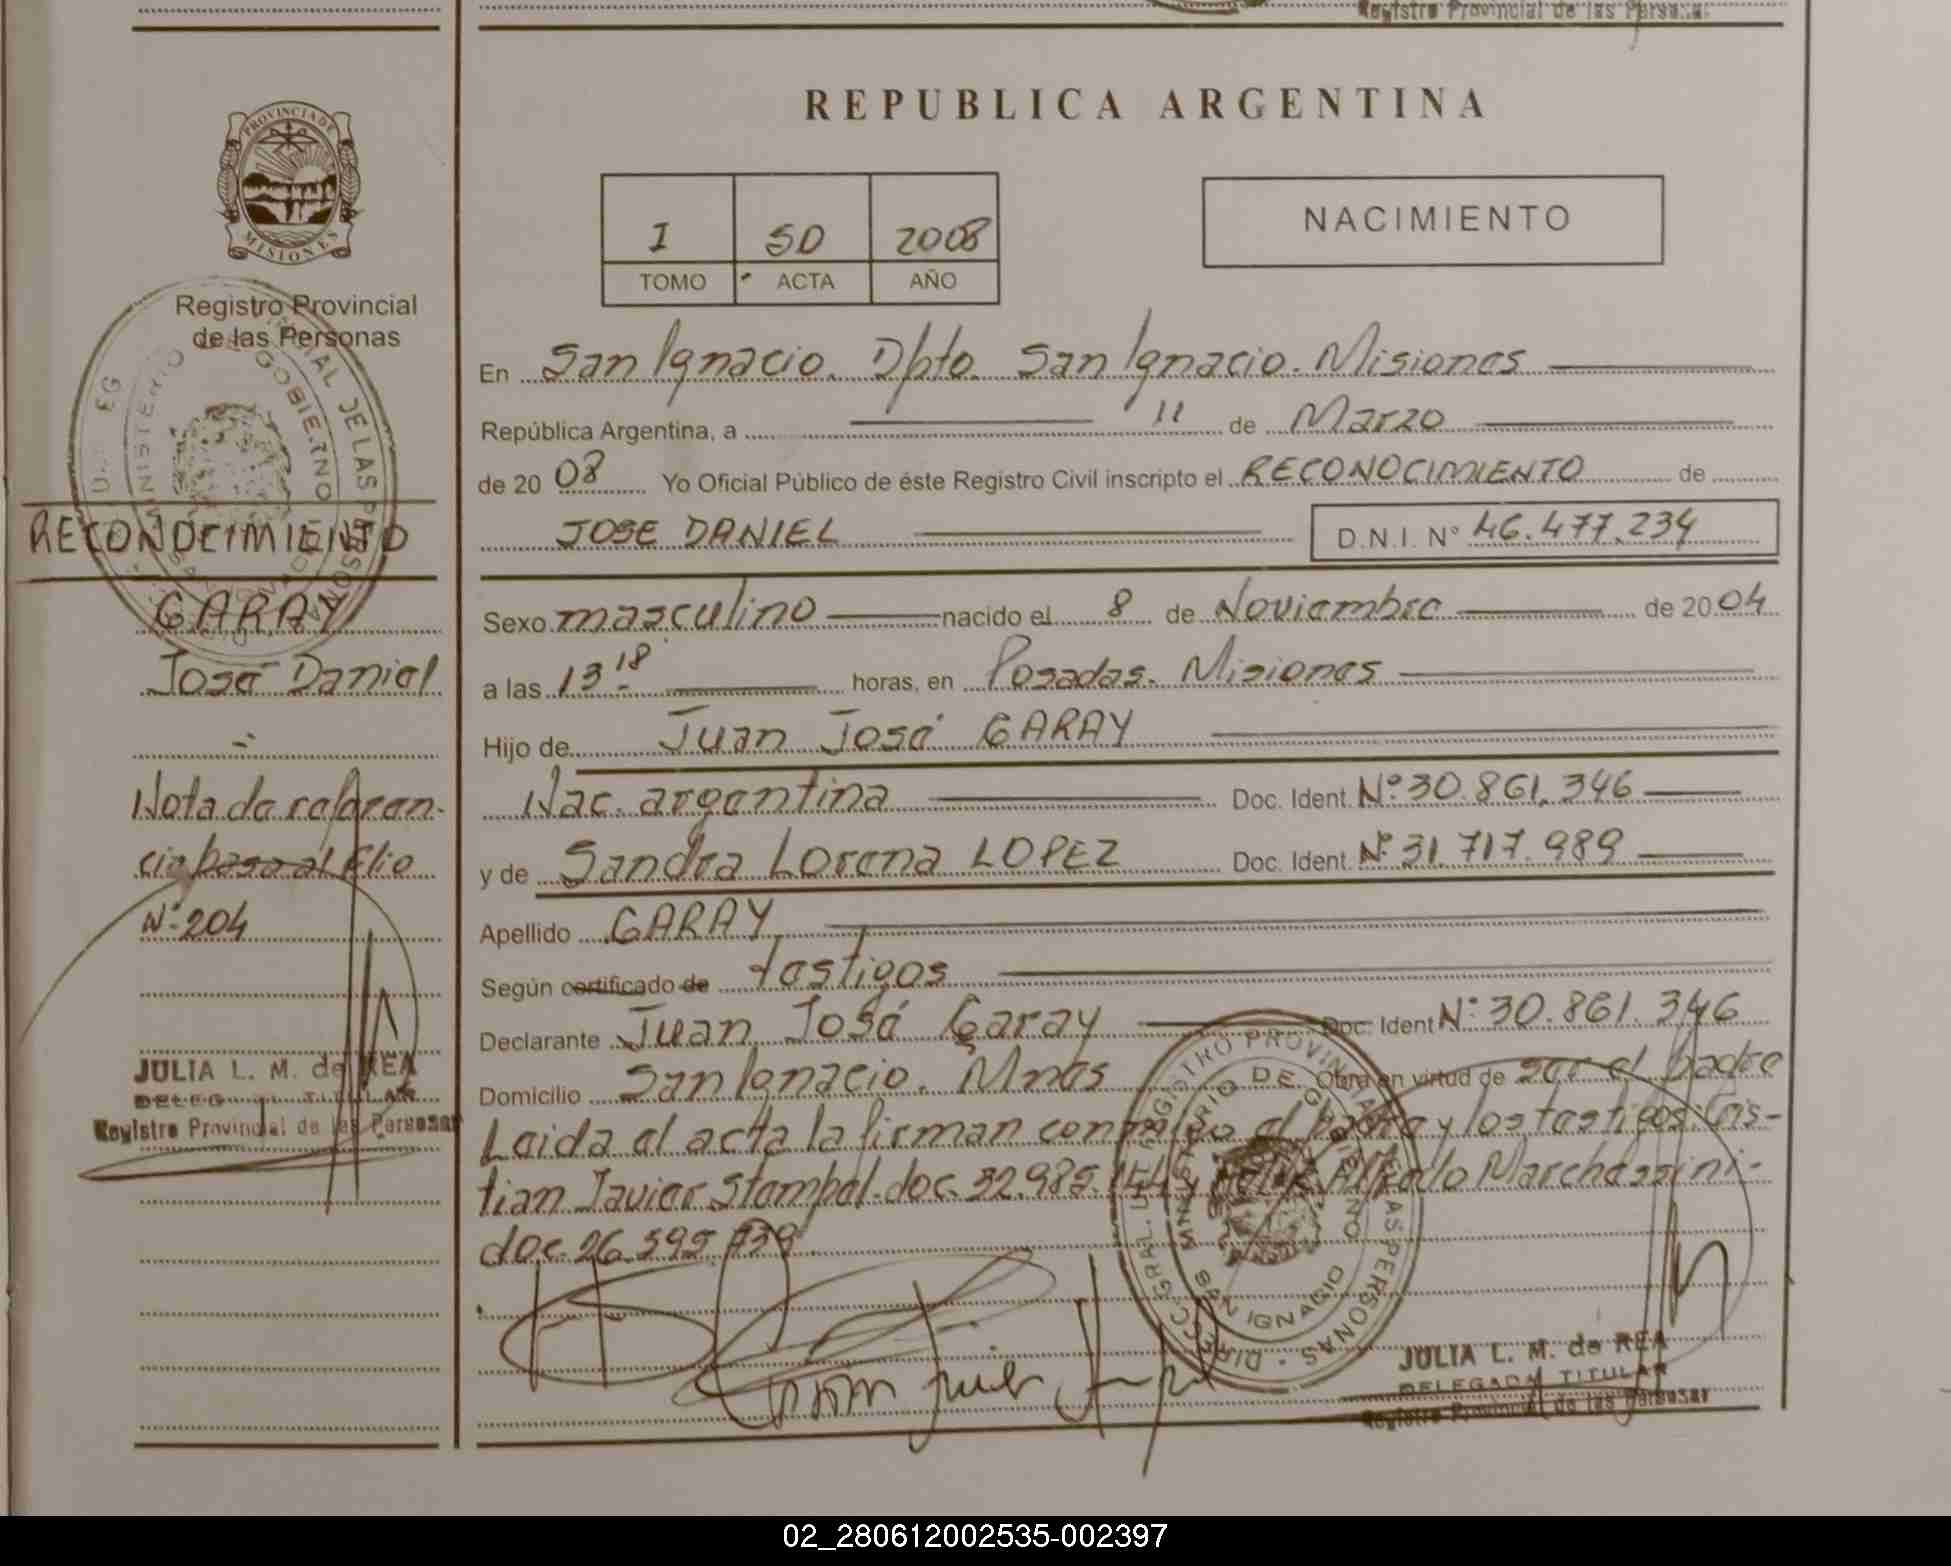 Registro Provincial de las Persona.
PROVINCIA DE
MISIONES
Registro Provincial
de las Personas
RECONOCIMIENTO
GARAY
José Daniel
Nota de referen-
cia pasa al flio
Nº 204
JULIA L. M. de REA
DELEGADA TITULAR
Registro Provincial de las Personas
REPUBLICA ARGENTINA
I 50 2008
TOMO ACTA AÑO
NACIMIENTO
En San Ignacio. Dpto. San Ignacio. Misiones
República Argentina, a 11 de Marzo
de 2008 Yo Oficial Público de éste Registro Civil inscripto el RECONOCIMIENTO de
JOSE DANIEL D.N.I. Nº 46.477.234
Sexo masculino nacido el 8 de Noviembre de 2004
a las 13 18 horas, en Posadas. Misiones
Hijo de Juan José GARAY
Nac. argentina Doc. Ident. Nº 30.861.346
y de Sandra Lorena LOPEZ Doc. Ident. Nº 31.717.989
Apellido GARAY
Según certificado de testigos
Declarante Juan José Garay Doc. Ident Nº 30.861.346
Domicilio San Ignacio. Mnes Obra en virtud de ser el padre
Leida el acta la firman conmigo el padre y los testigos: Cis-
tian Javier Stampel. doc. 32.985.144 y Alfredo Marchessini-
doc. 26.595.739
REGISTRO PROVINCIAL DE LAS PERSONAS
MINISTERIO DE GOBIERNO
SAN IGNACIO
JULIA L. M. de REA
DELEGADA TITULAR
Registro Provincial de las Personas
02_280612002535-002397